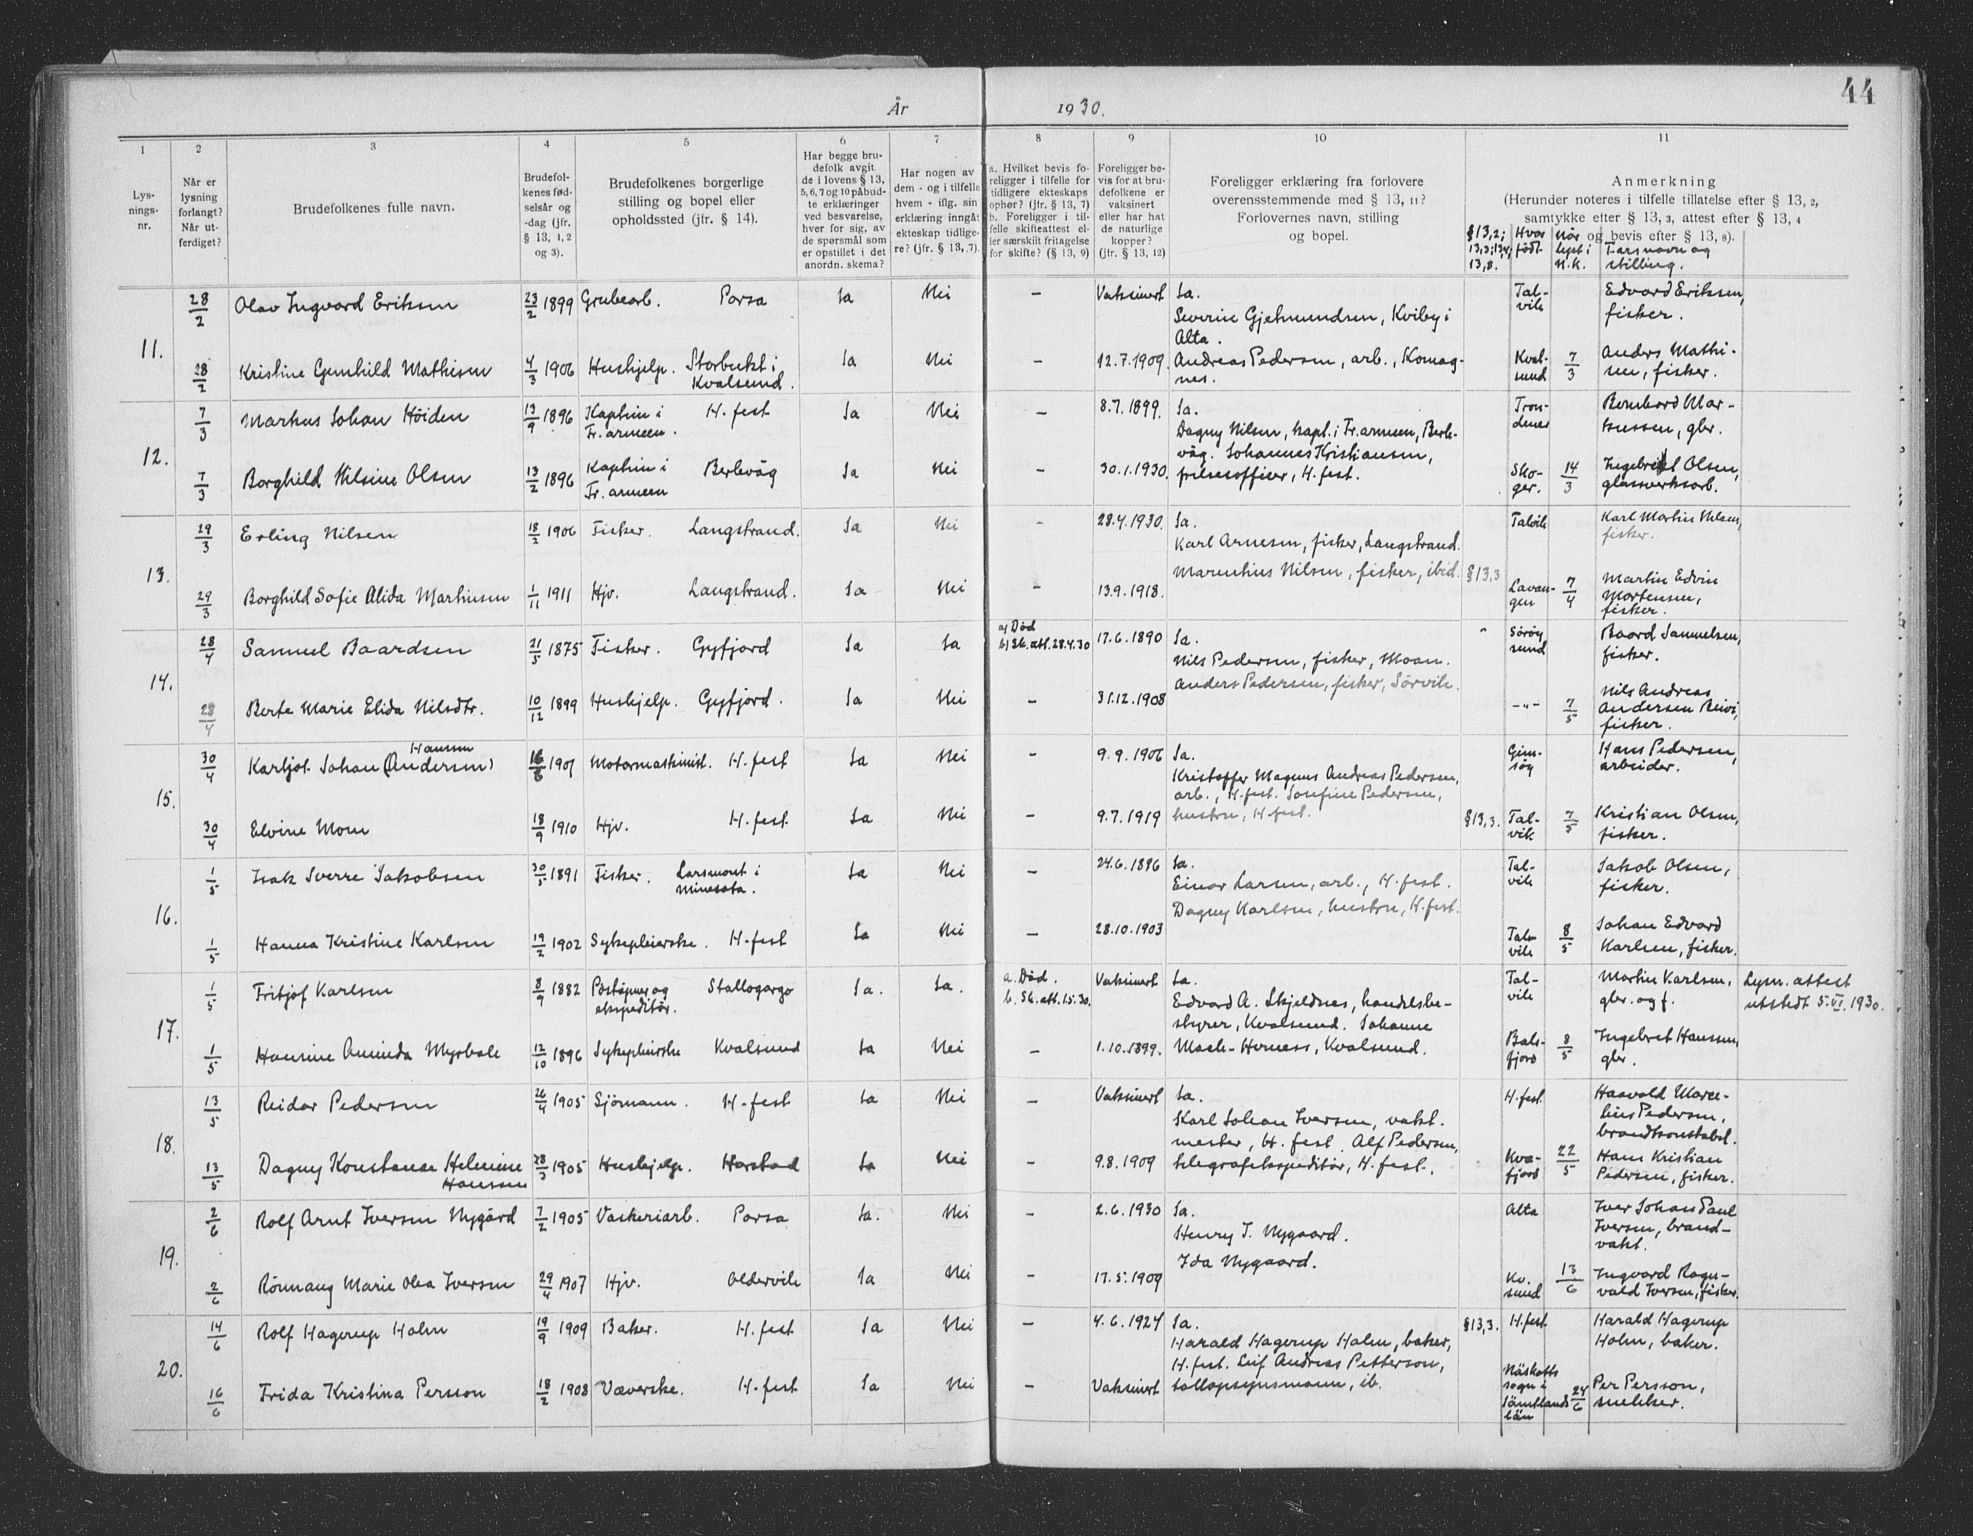 År 1930. 44
1 2 3 4 5 6 7 8 9 10 11
Lysningsnr.
Når er lysning forlangt? Når utferdiget?
Brudefolkenes fulle navn.
Brudefolkenes fødselsår og -dag (jfr. § 13, 1, 2 og 3).
Brudefolkenes borgerlige stilling og bopel eller opholdssted (jfr. § 14).
Har begge brudefolk avgit de i lovens § 13, 5, 6, 7 og 10 påbudte erklæringer ved besvarelse, hver for sig, av de spørsmål som er opstillet i det anordn. skema?
Har nogen av dem - og i tilfelle hvem - iflg. sin erklæring inngått ekteskap tidligere? (jfr. § 13, 7).
a. Hvilket bevis foreligger i tilfelle for tidligere ekteskaps ophør? (jfr. § 13, 7)
b. Foreligger i tilfelle skifteattest eller særskilt fritagelse for skifte? (§ 13, 9)
Foreligger bevis for at brudefolkene er vaksinert eller har hat de naturlige kopper? (jfr. § 13, 12)
Foreligger erklæring fra forlovere overensstemmende med § 13, 11? Forlovernes navn, stilling og bopel.
Anmerkning
(Herunder noteres i tilfelle tillatelse efter § 13, 2, samtykke efter § 13, 3, attest efter § 13, 4 og bevis efter § 13, 8).
§13,2; 13,3; 13,4; 13,8.
Hvor født
Når lyst i H.K.
Farsnavn og stilling.
11.
28/2 Olav Ingvard Eriksen 23/2 1899 Grubearb. Porsa Ja Nei – Vaksinert Ja. Talvik Edvard Eriksen, fisker.
Severine Gjelmundsen, Kviby i Alta.
28/2 Kristine Gunhild Mathisen 4/3 1906 Hushjelp. Storbukt i Kvalsund. Ja Nei – 12.7.1909. Andreas Pedersen, arb., Komagnes. Kvalsund 7/3 Anders Mathisen, fisker.
12.
7/3 Markus Johan Höiden 13/9 1896 Kaptein i Fr. armeen. H.fest Ja Nei – 8.7.1899. Ja. Trondenes Bernhard Markussen, gbr.
Dagny Nilsen, kapt. i Fr.armeen, Berlevåg. Johannes Kristiansen, frelsesofficer, H.fest.
7/3 Borghild Nilsine Olsen 13/2 1896 Kaptein i Fr. armeen Berlevåg Ja Nei – 30.1.1930. Skoger. 14/3 Ingebret Olsen, glassverksarb.
13.
29/3 Erling Nilsen 18/2 1906 Fisker. Langstrand. Ja Nei - 28.4.1930. Ja. Talvik Karl Martin Nilsen, fisker.
Karl Arnesen, fisker, Langstrand.
Marentius Nilsen, fisker, ibid. §13,3
29/3 Borghild Sofie Alida Martinsen 1/11 1911 Hjv. Langstrand. Ja Nei – 13.9.1918. Lavangen 7/4 Martin Edvin Mortensen, fisker.
14.
28/4 Samuel Baardsen 21/5 1875 Fisker. Gyfjord Ja Ja a) Død b) Sk.att. 28.4.30 17.6.1890 Ja. Sørøysund Baard Samuelsen, fisker.
Nils Pedersen, fisker, Moan.
Anders Pedersen, fisker, Sørvik.
28/4 Berte Marie Elida Nilsdtr. 10/12 1899 Hushjelp. Gyfjord. Ja Nei – 31.12.1908 –"– 7/5 Nils Andreas Andersen, fisker.
15.
30/4 Karljot Johan Hansen (Andersen) 1907 Motormaskinist. H.fest Ja Nei – 9.9.1906 Ja. Gimsøy Hans Pedersen, arbeider.
Kristoffer Magnus Andreas Pedersen, arb., H.fest. Josefine Pedersen, hustru, H.fest.
30/4 Elvine Mom 18/9 1910 Hjv. H.fest Ja Nei – 9.7.1919 §13,3. Talvik. 7/5 Kristian Olsen, fisker.
16.
1/5 Isak Sverre Jakobsen 30/5 1891 Fisker. Larsmont i Minesota. Ja Nei – 24.6.1896 Ja. Talvik Jakob Olsen, fisker.
Einar Larsen, arb., H.fest.
Dagny Karlsen, hustru, H.fest.
1/5 Hanna Kristine Karlsen 19/2 1902 Sykepleierske. H.fest Ja Nei – 28.10.1903 Talvik 8/5 Johan Edvard Karlsen, fisker.
17.
1/5 Fritjof Karlsen 8/9 1882 Poståpner og ekspeditør. Stallogargo Ja. Ja. a. Død. b. Sk.att. 1.5.30. Vaksinert Ja. Talvik Martin Karlsen, gbr. og f. Lysn. attest utstedt 5.VI.1930.
Edvard A. Skjeldnes, handelsbestyrer, Kvalsund. Johanne Mack-Herness, Kvalsund.
1/5 Hansine Aminda Myrbakk 12/10 1896 Sykepleierske Kvalsund Ja Nei – 1.10.1899. Balsfjord 8/5 Ingebret Hansen, gbr.
18.
13/5 Reidar Pedersen 26/4 1905 Sjømann. H-fest Ja Nei – Vaksinert Ja. H.fest Haavald Marcelius Pedersen, brandkonstabel.
Karl Johan Iversen, vaktmester, H.fest. Alf Pedersen, telegrafekspeditør, H.fest.
13/5 Dagny Konstanse Helmine Hanssen 28/3 1905 Hushjelp. Harstad Ja Nei – 9.8.1909 Kvæfjord 22/5 Hans Kristian Pedersen, fisker.
19.
2/6 Rolf Arnt Iversen Nygård 7/2 1905 Vaskeriarb. Porsa Ja. Nei – 2.6.1930 Ja. Alta Iver Johan Paul Iversen, brandvakt.
Henry J. Nygaard.
Ida Nygaard.
2/6 Rönnaug Marie Olea Iversen 29/4 1907 Hjv. Oldervik Ja Nei – 17.5.1909 Kv.sund 13/6 Ingvard Ragnvald Iversen, fisker.
20.
14/6 Rolf Hagerup Holm 19/9 1909 Baker. H.fest Ja Nei – 4.6.1924 Ja. §13,3. H.fest Harald Hagerup Holm, baker.
Harald Hagerup Holm, baker, H.fest. Leif Andreas Petterson, tollopsynsmann, ib.
16/6 Frida Kristina Persson 18/2 1908 Væverske. H.fest Ja Nei – Vaksinert Näskotts sogn i Jämtlands län 24/6 Per Persson, snekker.